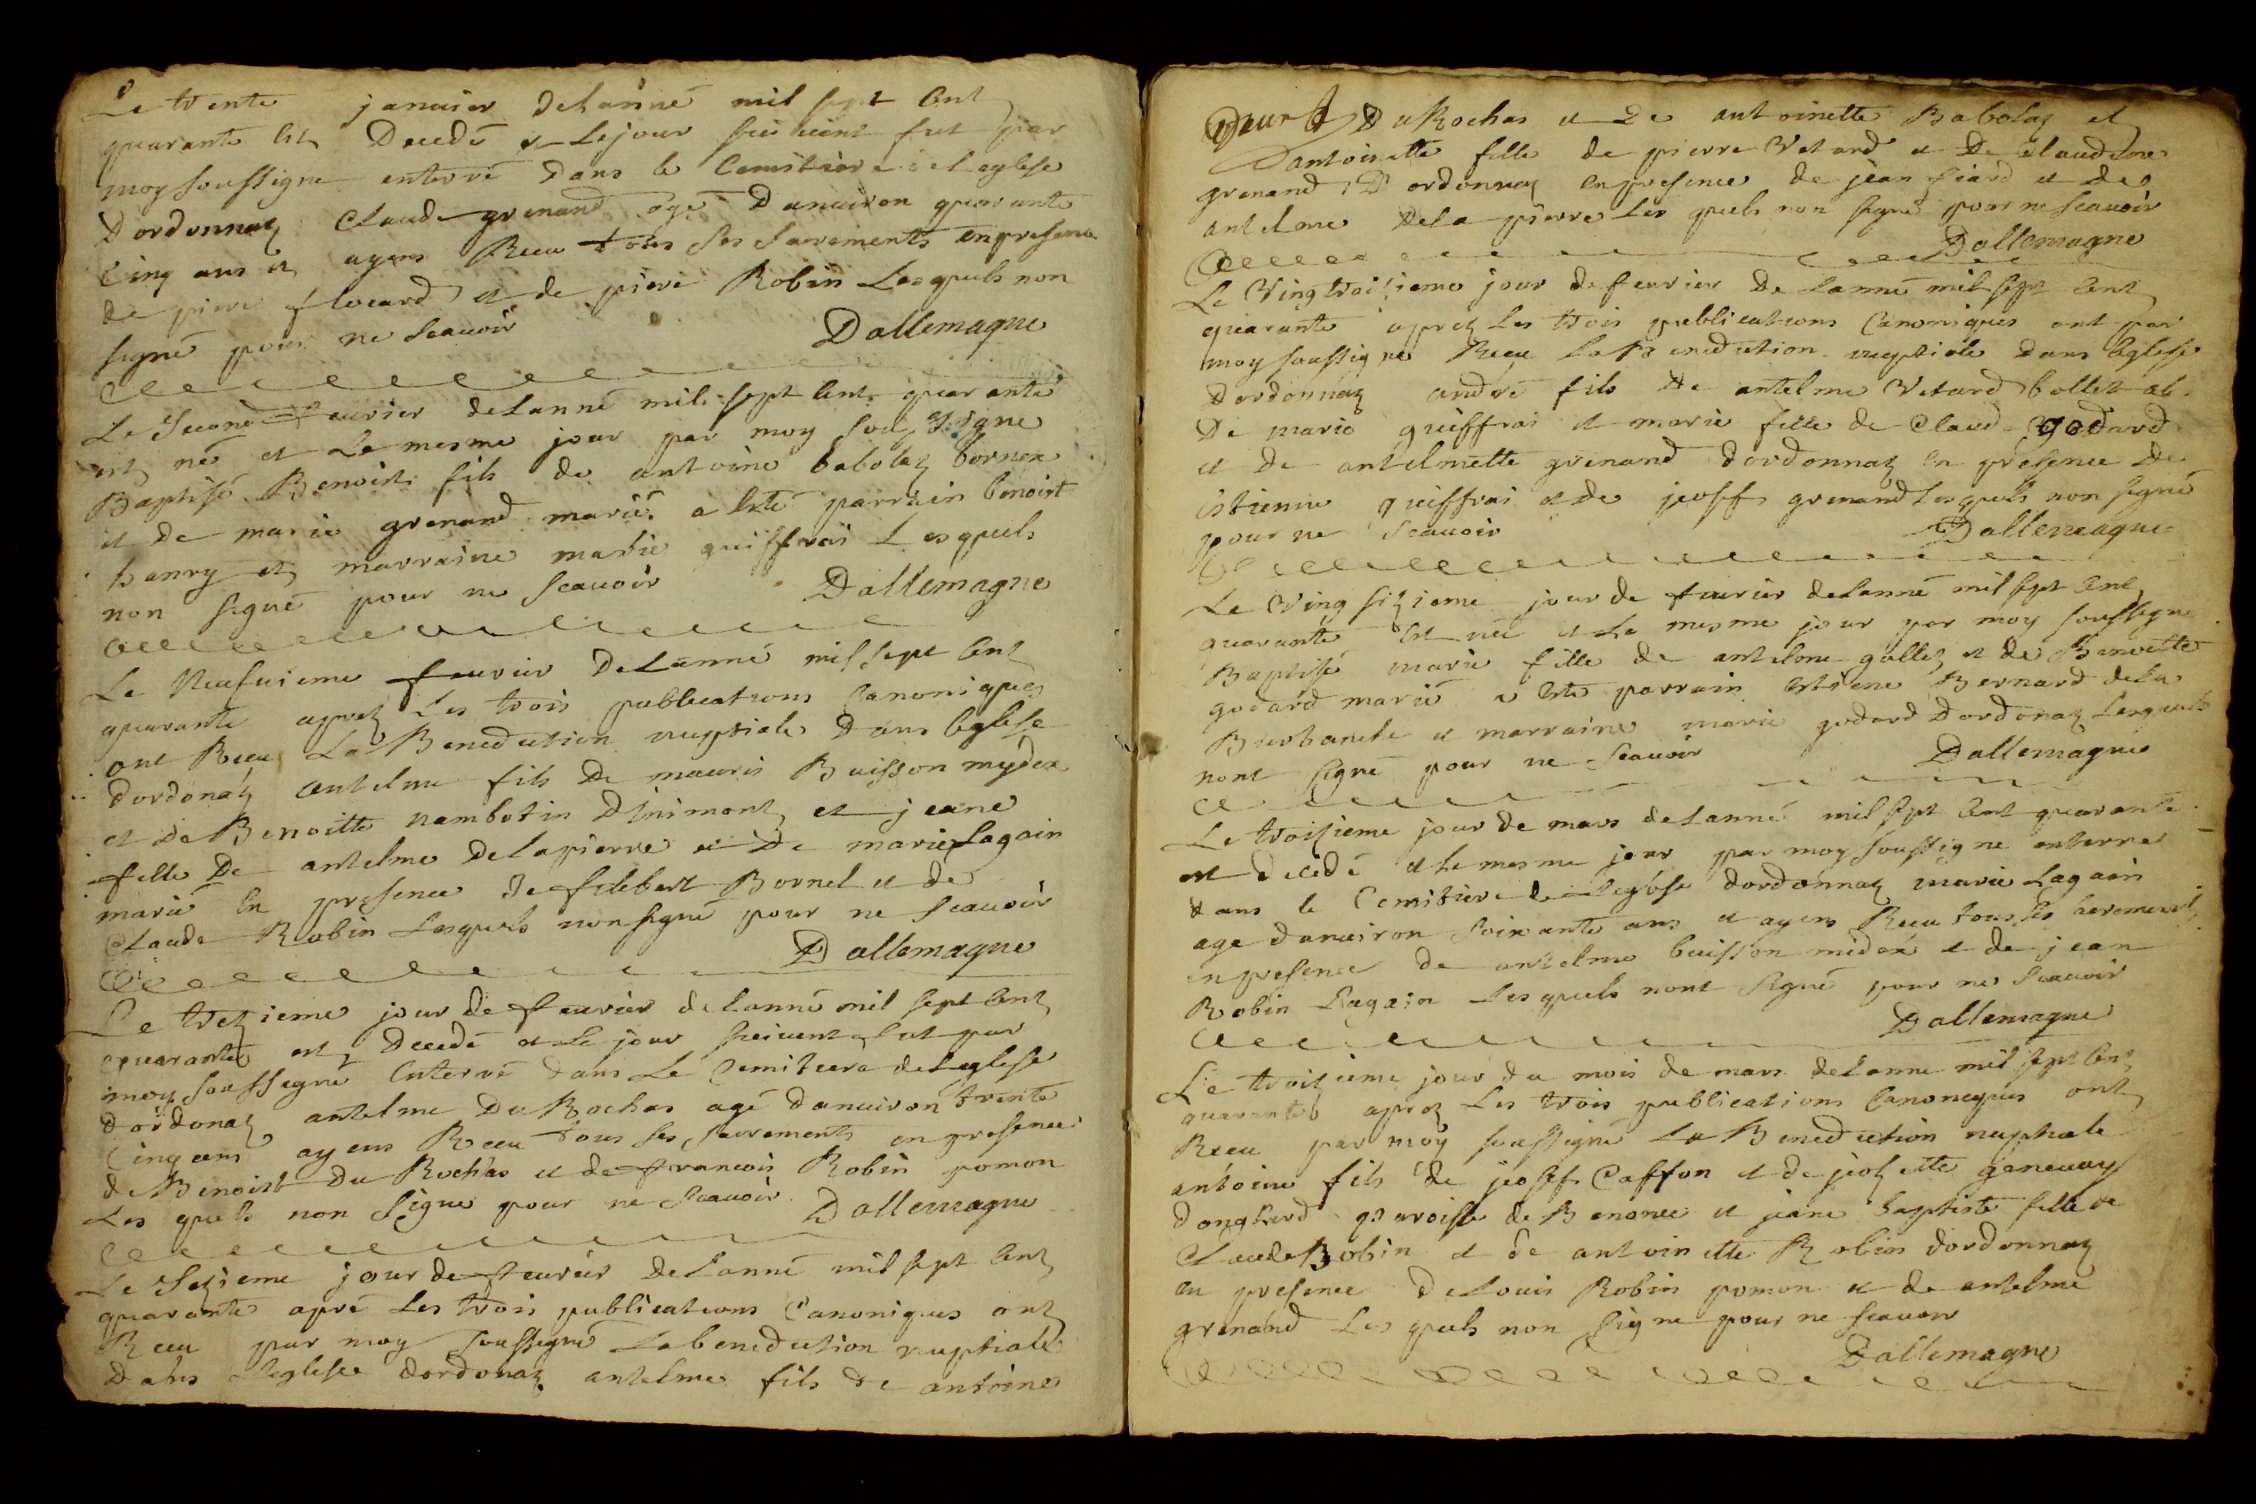 Le trente janvier delanné mil sept cent
quarante est Decedé et lejour suivent fut par
moy soussigne enterré dans le Cemitiere de leglise
Dordonnaz Claude grenand agé Danviron quarante
Cinq ans et ayens Receu tous ses Sacrements enpresence
de piere flocard et de piere Robin Lesquels non
signé pour ne scavoir
Dallemagne
Le second feuvrier delanné mil sept cent quarante
est né et Le mesme jour par moy sousigne
Baptisé Benoist fils de antoine babolaz bornex
et De marie grenand mariés a esté parrain benoist
hanry et marraine marie guiffrai Lesquels
non signé pour ne scavoir
Dallemagne
Le Neufvieme feuvrier Delanné mil sept Cent
quarante aprez Les trois publications Canoniques
ont Receu La Benediction nuptiale Dans leglise
Dordonaz antelme fils De mauris Buisson mydex
et de Benoitte nambotin Dinimont et jeane
fille De antelme Delapierre et De marie Lagoin
marié En presence de filebert Bornel et de
Claude Robin Lesquels non signé pour ne scavoir
Dallemagne
Le trezieme jour de feuvrier delanné mil sept Cent
quarante est Decedé et Le jour suivent fut par
moy soussigné Enterré dans Le Cemitiere de Leglise
dordonaz antelme Du Rochas agé danviron trente
Cinq ans ayens Receu tous ses sacrements en presence
de Benoist Du Rochas et de francois Robin pomon
Les quels non Signe pour ne Scavoir
Dallemagne
Le Sezieme jour de feuvrier Delanné mil sept Cent
quarante apré Les trois publications Canoniques ont
Receu par moy soussigné La benediction nuptiale
Dans Leglise dordonaz antelme fils de antoine
Du Rochas et De antoinette Babolaz et
antoinette fille de pierre Vetard et De Claudine
grenand Dordonnaz enpresence de jean fiard et de
antelme Dela pierre Les quels non signé pour ne scavoir
Dallemagne
Le Vingtroisieme jour de fevrier De lanné mil sept Cent
quarante aprez Les trois publications Canoniques ont par
moy soussigne Receu La Benediction nuptiale Dans leglise
Dordonnaz andré fils De antelme Vetard bollet et
De marie guiffrai et marie fille de Claude godard
et De antelmette grenand dordonnaz en presence De
istienne guiffrai et de joseph grenand Lesquels non signé
pour ne scavoir
Dallemagne
Le Ving sizieme jour de feuvrier delanné mil sept Cent
quarante Est née et Le mesme jour par moy soussigne
Baptisé marie fille de antelme gallet et de Benoitte
godard marié a esté parrain estiene Bernard dela
Burbanche et marraine marie godard Dordonaz Lesquels
nont signé pour ne scavoir
Dallemagne
Le troisieme jour de mars delanné mil sept Cent quarante
est decedé et le mesme jour par moy soussigne enterre
dans le Cemitiere de leglise dordonnaz marie Lagain
age danviron soixante ans et ayens Receu tous ses sacrements
en presence de antelme buisson midex et de jean
Robin Lagain Lesquels nont Signé pour ne scavoir
Dallemagne
Le troisieme jour du mois de mars delanne mil sept Cent
quarante aprez Les trois publications Canoniques ont
Receu par moy soussigné La Benediction nuptiale
antoine fils de josef Caffon et de jozette genevay
donglard paroisse de Benonce et jeane baptiste fille de
Claude Robin et de antoinette Robin dordonnaz
en presence de Louis Robin pomon et de antelme
grenand Les quels non signe pour ne scavoir
Dallemagne